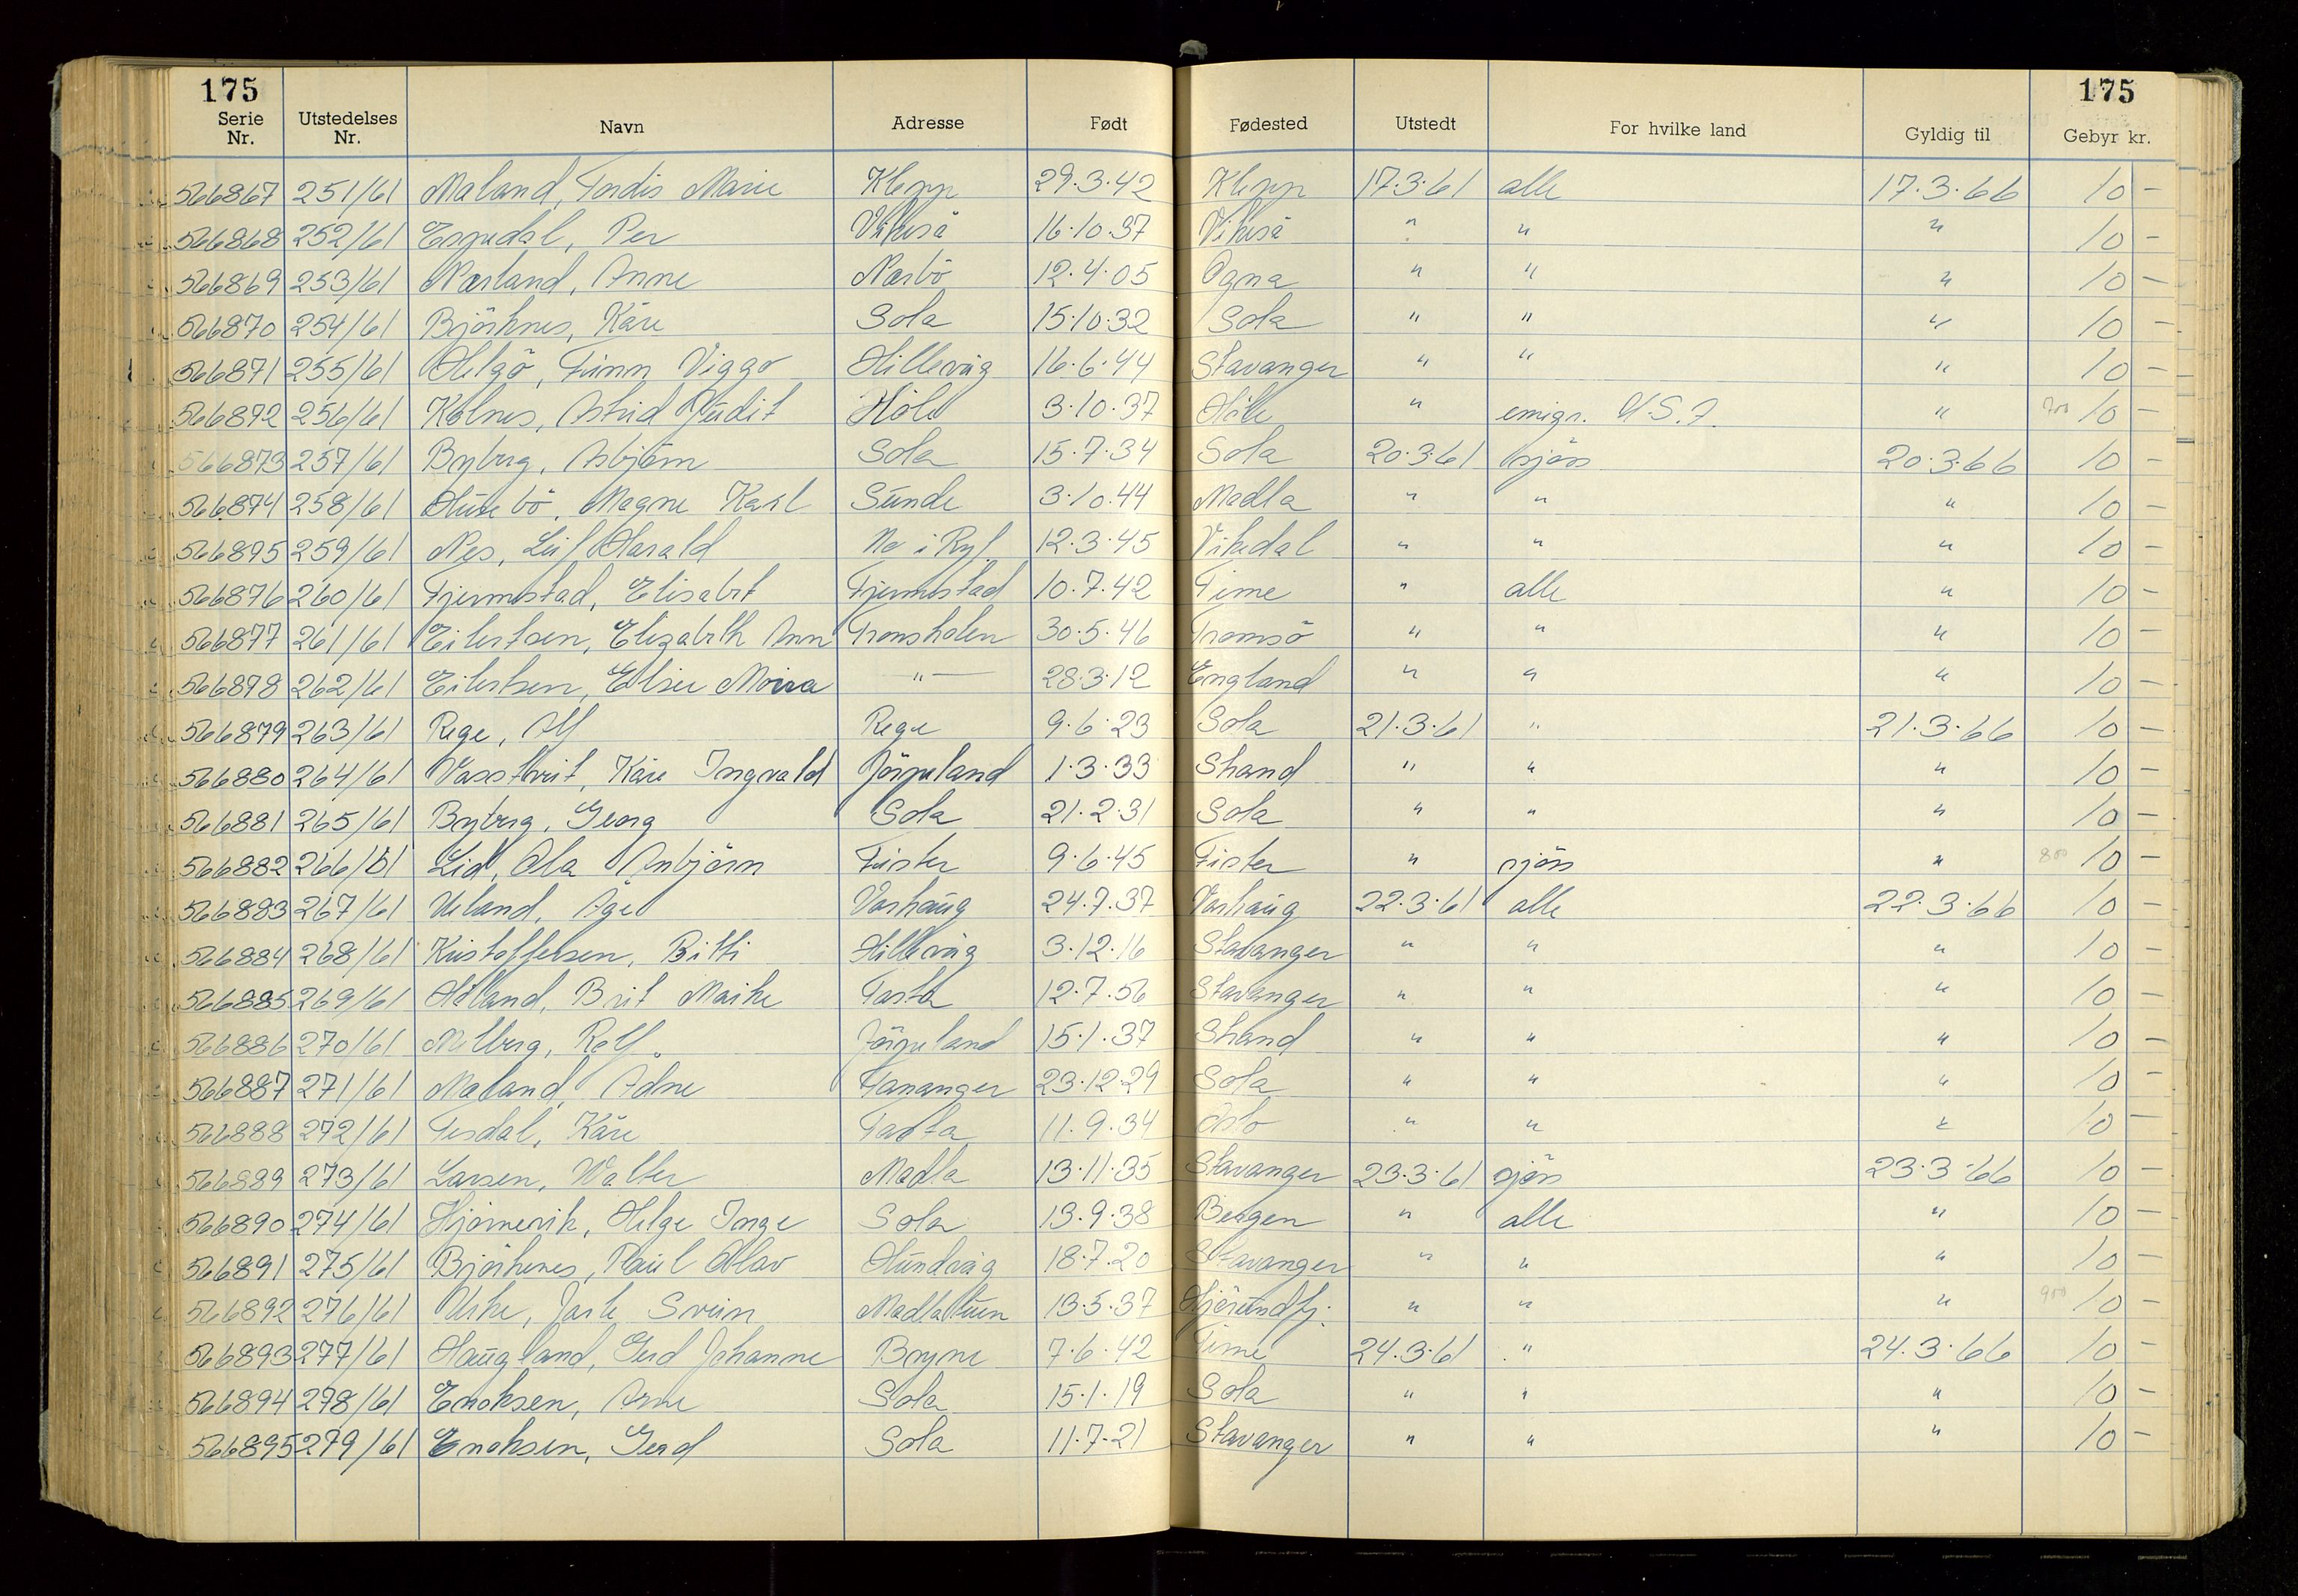 175 175
Serie Nr. Utstedelses Nr. Navn Adresse Født Fødested Utstedt For hvilke land Gyldig til Gebyr kr.
566867 251/61 Maland, Tordis Marie Klepp 29.3.42 Klepp 17.3.61 alle 17.3.66 10 –
566868 252/61 Espedal, Per Vikeså 16.10.37 Vikeså " " " 10 –
566869 253/61 Nærland, Anne Nærbö 12.4.05 Ogna " " " 10 –
566870 254/61 Björknes, Kåre Sola 15.10.32 Sola " " " 10 –
566871 255/61 Helgö, Finn Viggo Hillevåg 16.6.44 Stavanger " " " 10 –
566872 256/61 Kolnes, Astrid Judit Höle 3.10.37 Höle " emigr. U.S.A. " 700 10 –
566873 257/61 Byberg, Asbjörn Sola 15.7.34 Sola 20.3.61 sjöss 20.3.66 10 –
566874 258/61 Husebö, Magne Karl Sunde 3.10.44 Madla " " " 10 –
566895 259/61 Nes, Leif Harald Ne i Ryf 12.3.45 Vikedal " " " 10 –
566876 260/61 Fjermestad, Elisabet Fjermestad 10.7.42 Time " alle " 10 –
566877 261/61 Eilertsen, Elizabeth Ann Tronsholen 30.5.46 Tromsö " " " 10 –
566878 262/61 Eilertsen, Elsie Moira " — 28.3.12 England " " " 10 –
566879 263/61 Rege, Alf Rege 9.6.23 Sola 21.3.61 " 21.3.66 10 –
566880 264/61 Vasstveit, Kåre Ingvald Jörpeland 1.3.33 Strand " " " 10 –
566881 265/61 Byberg, Georg Sola 21.2.31 Sola " " " 10 –
566882 266/61 Lid, Ola Anbjörn Fister 9.6.45 Fister " sjöss " 800 10 –
566883 267/61 Ueland, Åge Varhaug 24.9.37 Varhaug 22.3.61 alle 22.3.66 10 –
566884 268/61 Kristoffersen, Bitti Hillevåg 3.12.16 Stavanger " " " 10 –
566885 269/61 Håland, Brit Marie Tasta 12.7.56 Stavanger " " " 10 –
566886 270/61 Melberg, Rolf Jörpeland 15.1.37 Strand " " " 10 –
566887 271/61 Maland, Adne Tananger 23.12.29 Sola " " " 10 –
566888 272/61 Tesdal, Kåre Tasta 11.9.34 Oslo " " " 10 –
566889 273/61 Larsen, Walter Madla 13.11.35 Stavanger 23.3.61 sjöss 23.3.66 10 –
566890 274/61 Hjörnevik, Helge Inge Sola 13.9.38 Bergen " alle " 10 –
566891 275/61 Björkenes, Paul Olav Hundvåg 18.7.20 Stavanger " " " 10 –
566892 276/61 Urke, Jarle Svein Madlatuen 13.5.37 Hjörundfj. " " " 900 10 –
566893 277/61 Haugland, Gerd Johanne Bryne 7.6.42 Time 24.3.61 " 24.3.66 10 –
566894 278/61 Enoksen, Arne Sola 15.1.19 Sola " " " 10 –
566895 279/61 Enoksen, Gerd Sola 11.7.21 Stavanger " " " 10 –